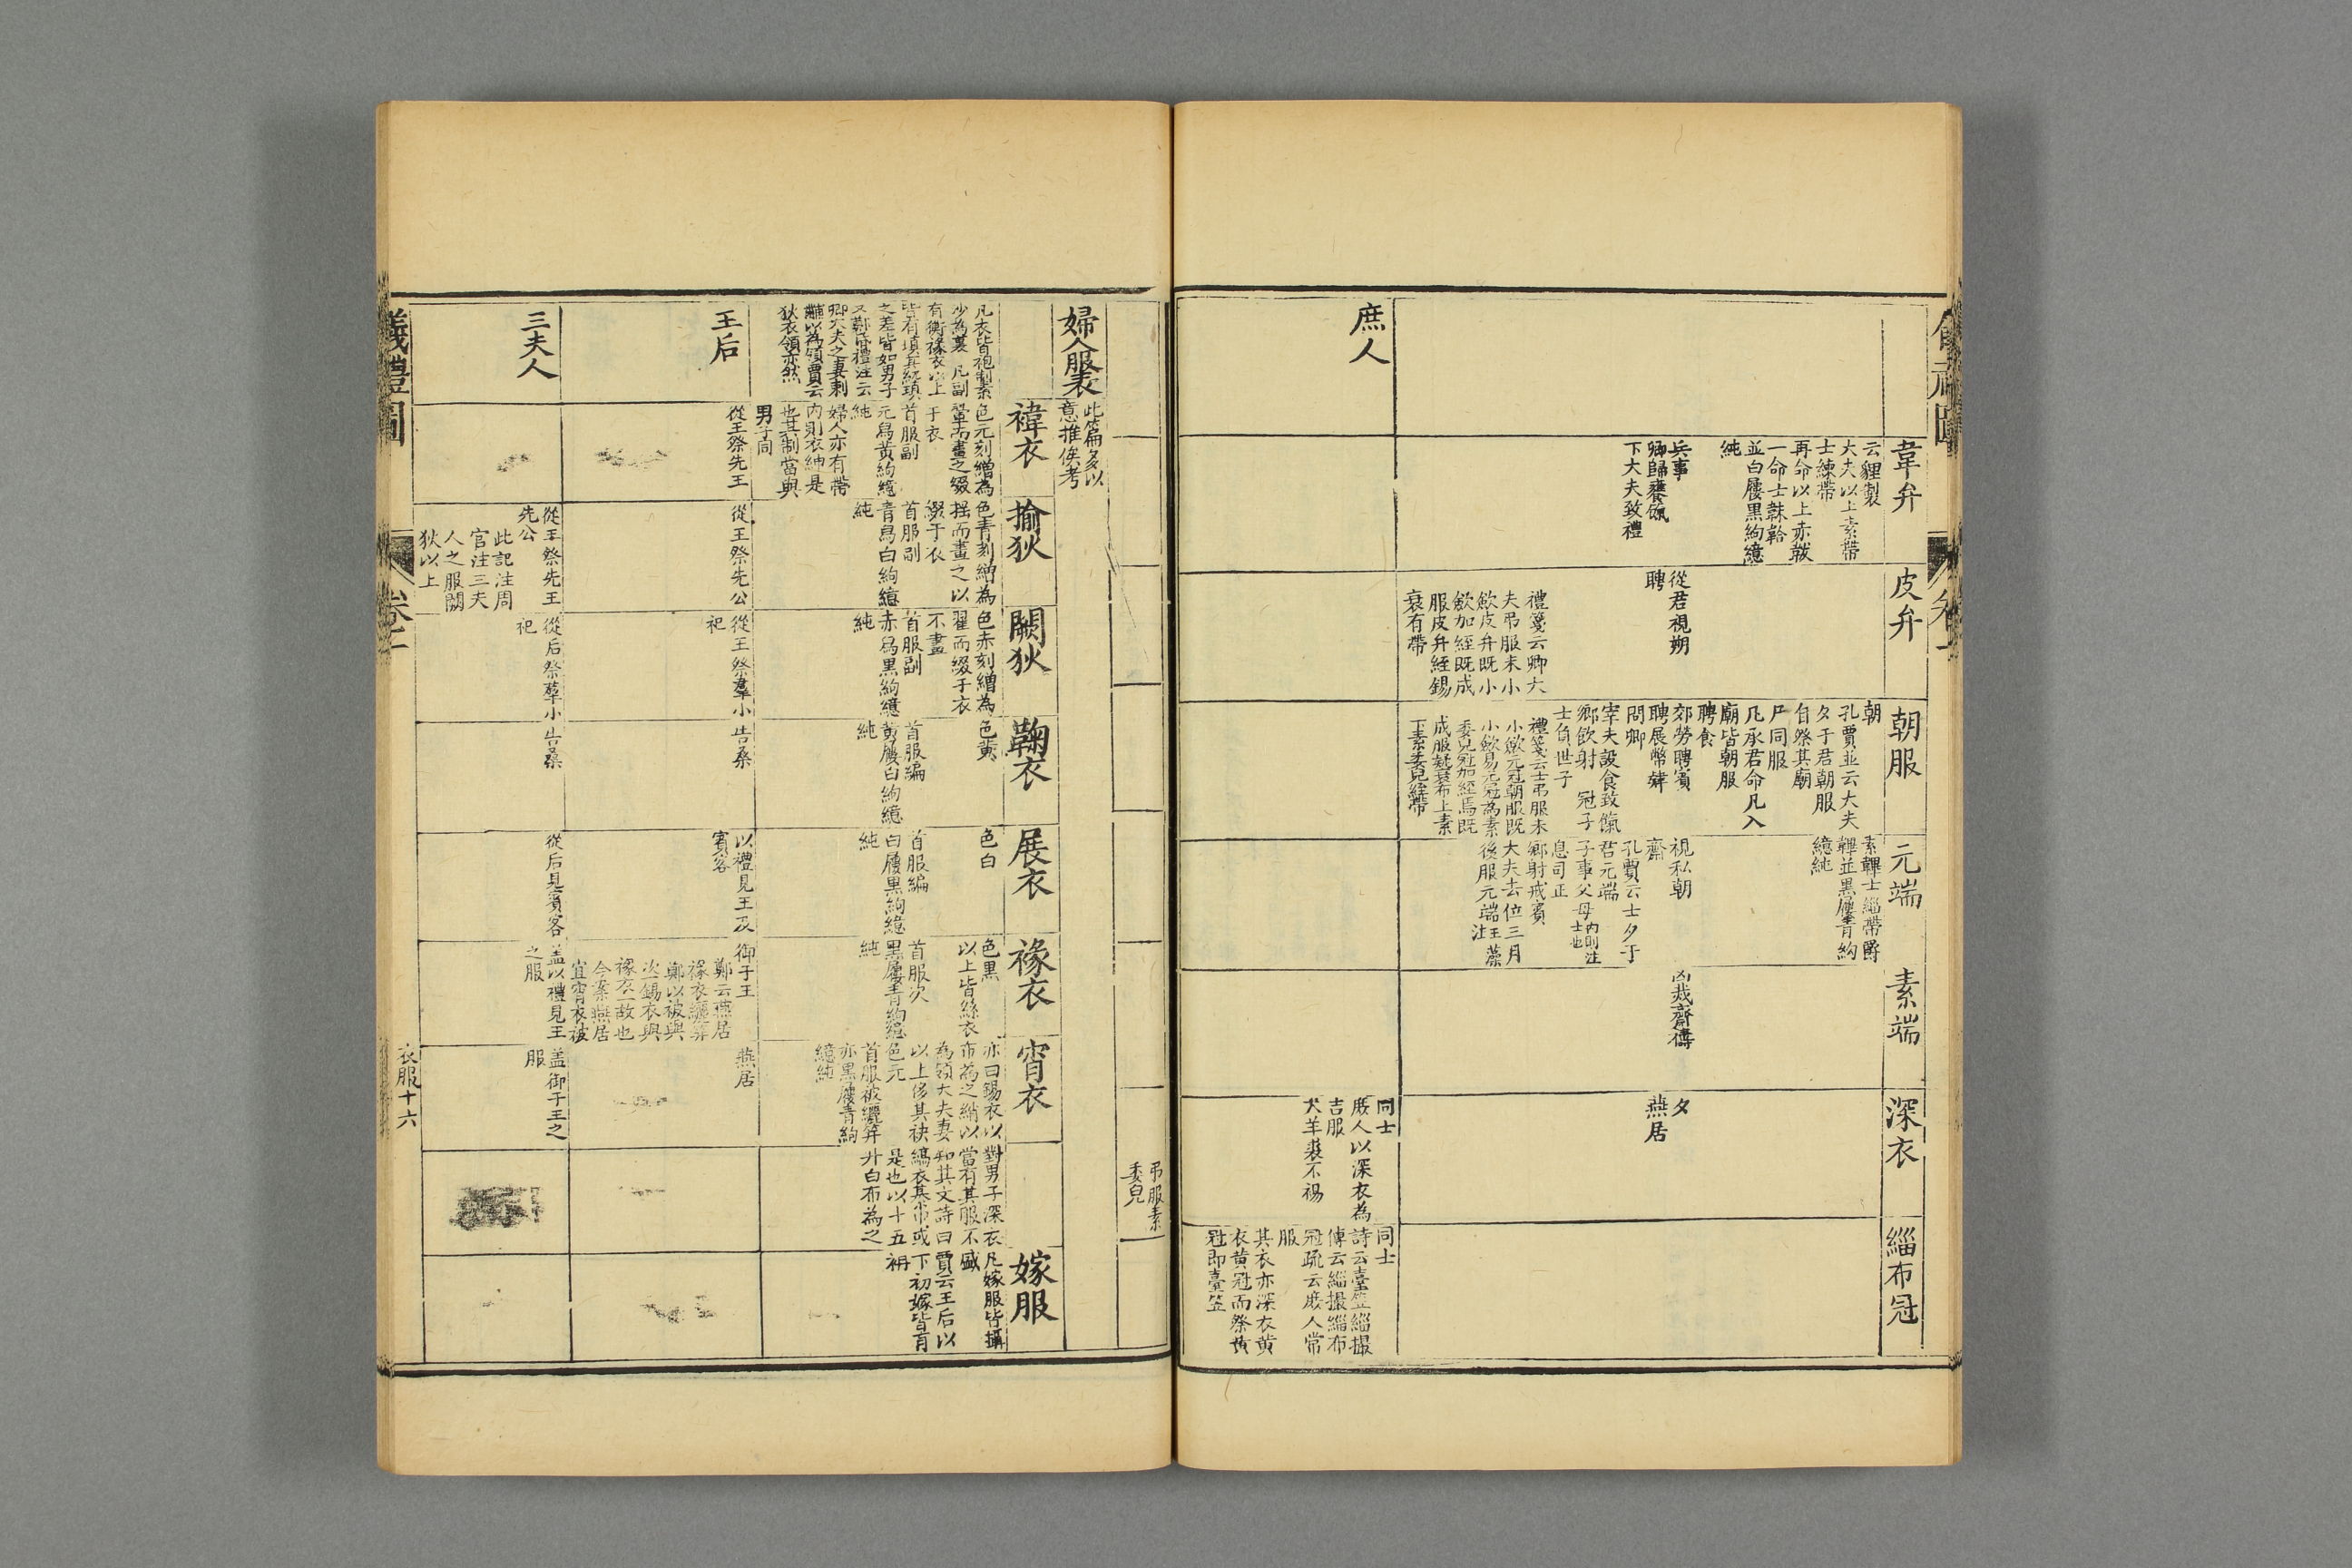 韋弁
云貍製
大夫以上素帶
士練帶
再命以上赤韍
一命士韎韐
並白屨黒絇繶
純
兵事
卿歸饔餼
下大夫致禮
皮弁
從君視朔
聘
禮箋云卿大
夫弔服未小
歛皮弁既小
歛加絰既成
服皮弁絰錫
衰有帶
朝服
朝
孔賈並云大夫
夕于君朝服
自祭其廟
尸同服
凡承君命凡入
廟皆朝服
聘食
郊勞聘賓
聘展幣舞
問卿
宰夫設食致餼
鄉飲射 冠子
士負世子
禮箋云士弔服未
小歛元冠朝服既
小歛易元冠為素
委皃冠加絰焉既
成服疑衰布上素
下素委皃絰帶
元端
素韠士緇帶爵
韠並黒屨青絇
繶純
視私朝
齋
孔賈云士夕于
君元端
子事父母內則注士也
息司正
鄉射戒賓
大夫去位三月
後服元端玉藻注
素端
凶烖齋禱
深衣
夕
燕居
緇布冠
庶人
同士
庶人以深衣為
吉服
犬羊裘不裼
同士
詩云臺笠緇撮
傳云緇撮緇布
冠疏云庶人常
服
其衣亦深衣黃
衣黃冠而祭黃
冠即臺笠
弔服素
委皃
婦人服表
此篇多以
意推俟考
凡衣皆袍制素
沙為裏 凡副
有衡褖衣以上
皆有填其紞瑱
之差皆如男子
又鄭昏禮注云
卿大夫之妻刺
黼以為領賈云
狄衣領亦然
褘衣
色元刻繒為
翬而畫之綴
于衣
首服副
元舄黃絇繶
純
婦人亦有帶
內則衣紳是
也其制當與
男子同
揄狄
色青刻繒為
揺而畫之以
綴于衣
首服副
青舄白絇繶
純
闕狄
色赤刻繒為
翟而綴于衣
不畫
首服副
赤舄黒絇繶
純
鞠衣
色黃
首服編
黃屨白絇繶
純
展衣
色白
首服編
白屨黒絇繶
純
褖衣
色黒
以上皆絲衣
首服次
黒屨青絇繶
純
宵衣
亦曰錫衣以
布為之綃以
為領大夫妻
以上侈其袂
色元
首服被纚笄
亦黒屨青絇
繶純
對男子深衣
當有其服不
知其文詩曰
縞衣綦巾或
是也以十五
升白布為之
嫁服
凡嫁服皆攝
盛
賈云王后以
下初嫁皆有
袡
王后
從王祭先王
從王祭先公
從王祭羣小
祀
告桑
以禮見王及
賓客
御于王
鄭云燕居
褖衣纚笄
鄭以被與
次錫衣與
褖衣一故也
今案燕居
宜宵衣被
燕居
三夫人
從王祭先王
先公
此記注周
官注三夫
人之服闕
狄以上
從后祭羣小
祀
告桑
從后見賓客
盖以禮見王
之服
盖御于王之
服
儀禮圖
卷二
衣服十六